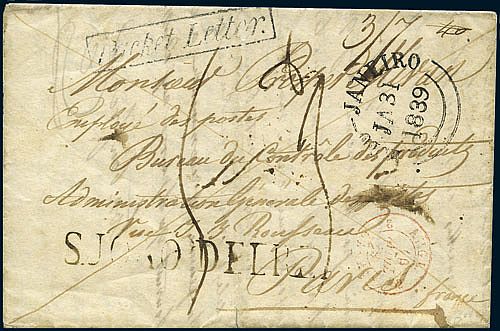 Packet Letter.
3/7 40
Monsieur
JANEIRO
JA 31
1839
Employé des postes
Bureau du Contrôle des produits
Administration Générale des postes
Rue J. J. Rousseau
S. JOAO DEL
Paris
france